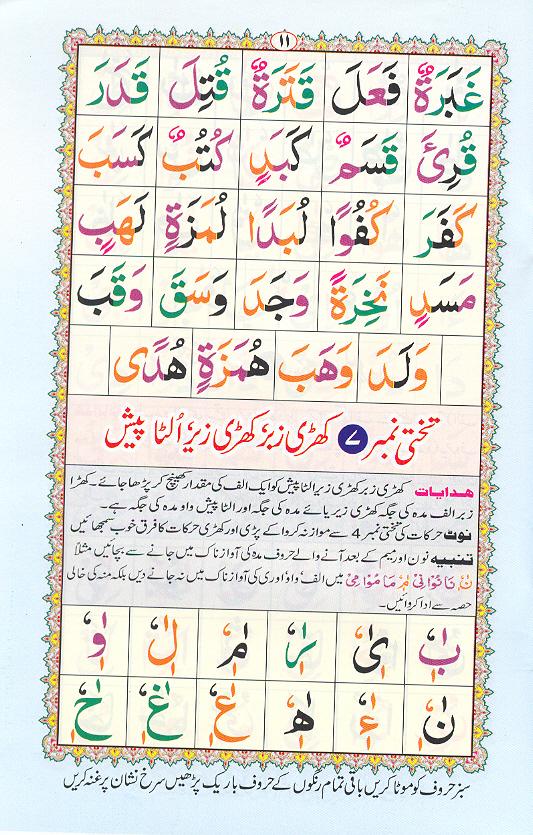 ۱۱
غَبَرَةٌ فَعَلَ قَتَرَةٌ قُتِلَ قَدَرَ
قُرِئَ قَسَمٌ كَبَدٍ كُتُبٌ كَسَبَ
كَفَرَ كُفُوًا لُبَدًا لُمَزَةٍ لَهَبٍ
مَسَدٍ نَخِرَةً وَجَدَ وَسَقَ وَقَبَ
وَلَدَ وَهَبَ هُمَزَةٍ هُدًى
تختی نمبر ۷ کھڑی زبر کھڑی زیر اُلٹا پیش
ھدایات کھڑی زبر کھڑی زیر الٹا پیش کو ایک الف کی مقدار کھینچ کر پڑھا جائے۔ کھڑا
زبر الف مدہ کی جگہ کھڑی زیر یائے مدہ کی جگہ اور الٹا پیش واو مدہ کی جگہ ہے۔
نوٹ حرکات کی تختی نمبر 4 سے موازنہ کروا کے پڑی اور کھڑی حرکات کا فرق خوب سمجھائیں
تنبیہ نون اور میم کے بعد آنے والے حروف مدہ کی آواز ناک میں جانے سے بچائیں مثلاً
نَا نُوْا نِىْ مَا مُوْا مِىْ میں الف واؤ اور ی کی آواز ناک میں نہ جانے دیں بلکہ منہ کی خالی
حصہ سے ادا کروائیں۔
بٰ یٰ رٰ مٰ لٰ وٰ
نٰ ءٰ هٰ عٰ غٰ حٰ
سبز حروف کو موٹا کریں باقی تمام رنگوں کے حروف باریک پڑھیں سرخ نشان پر غنہ کریں